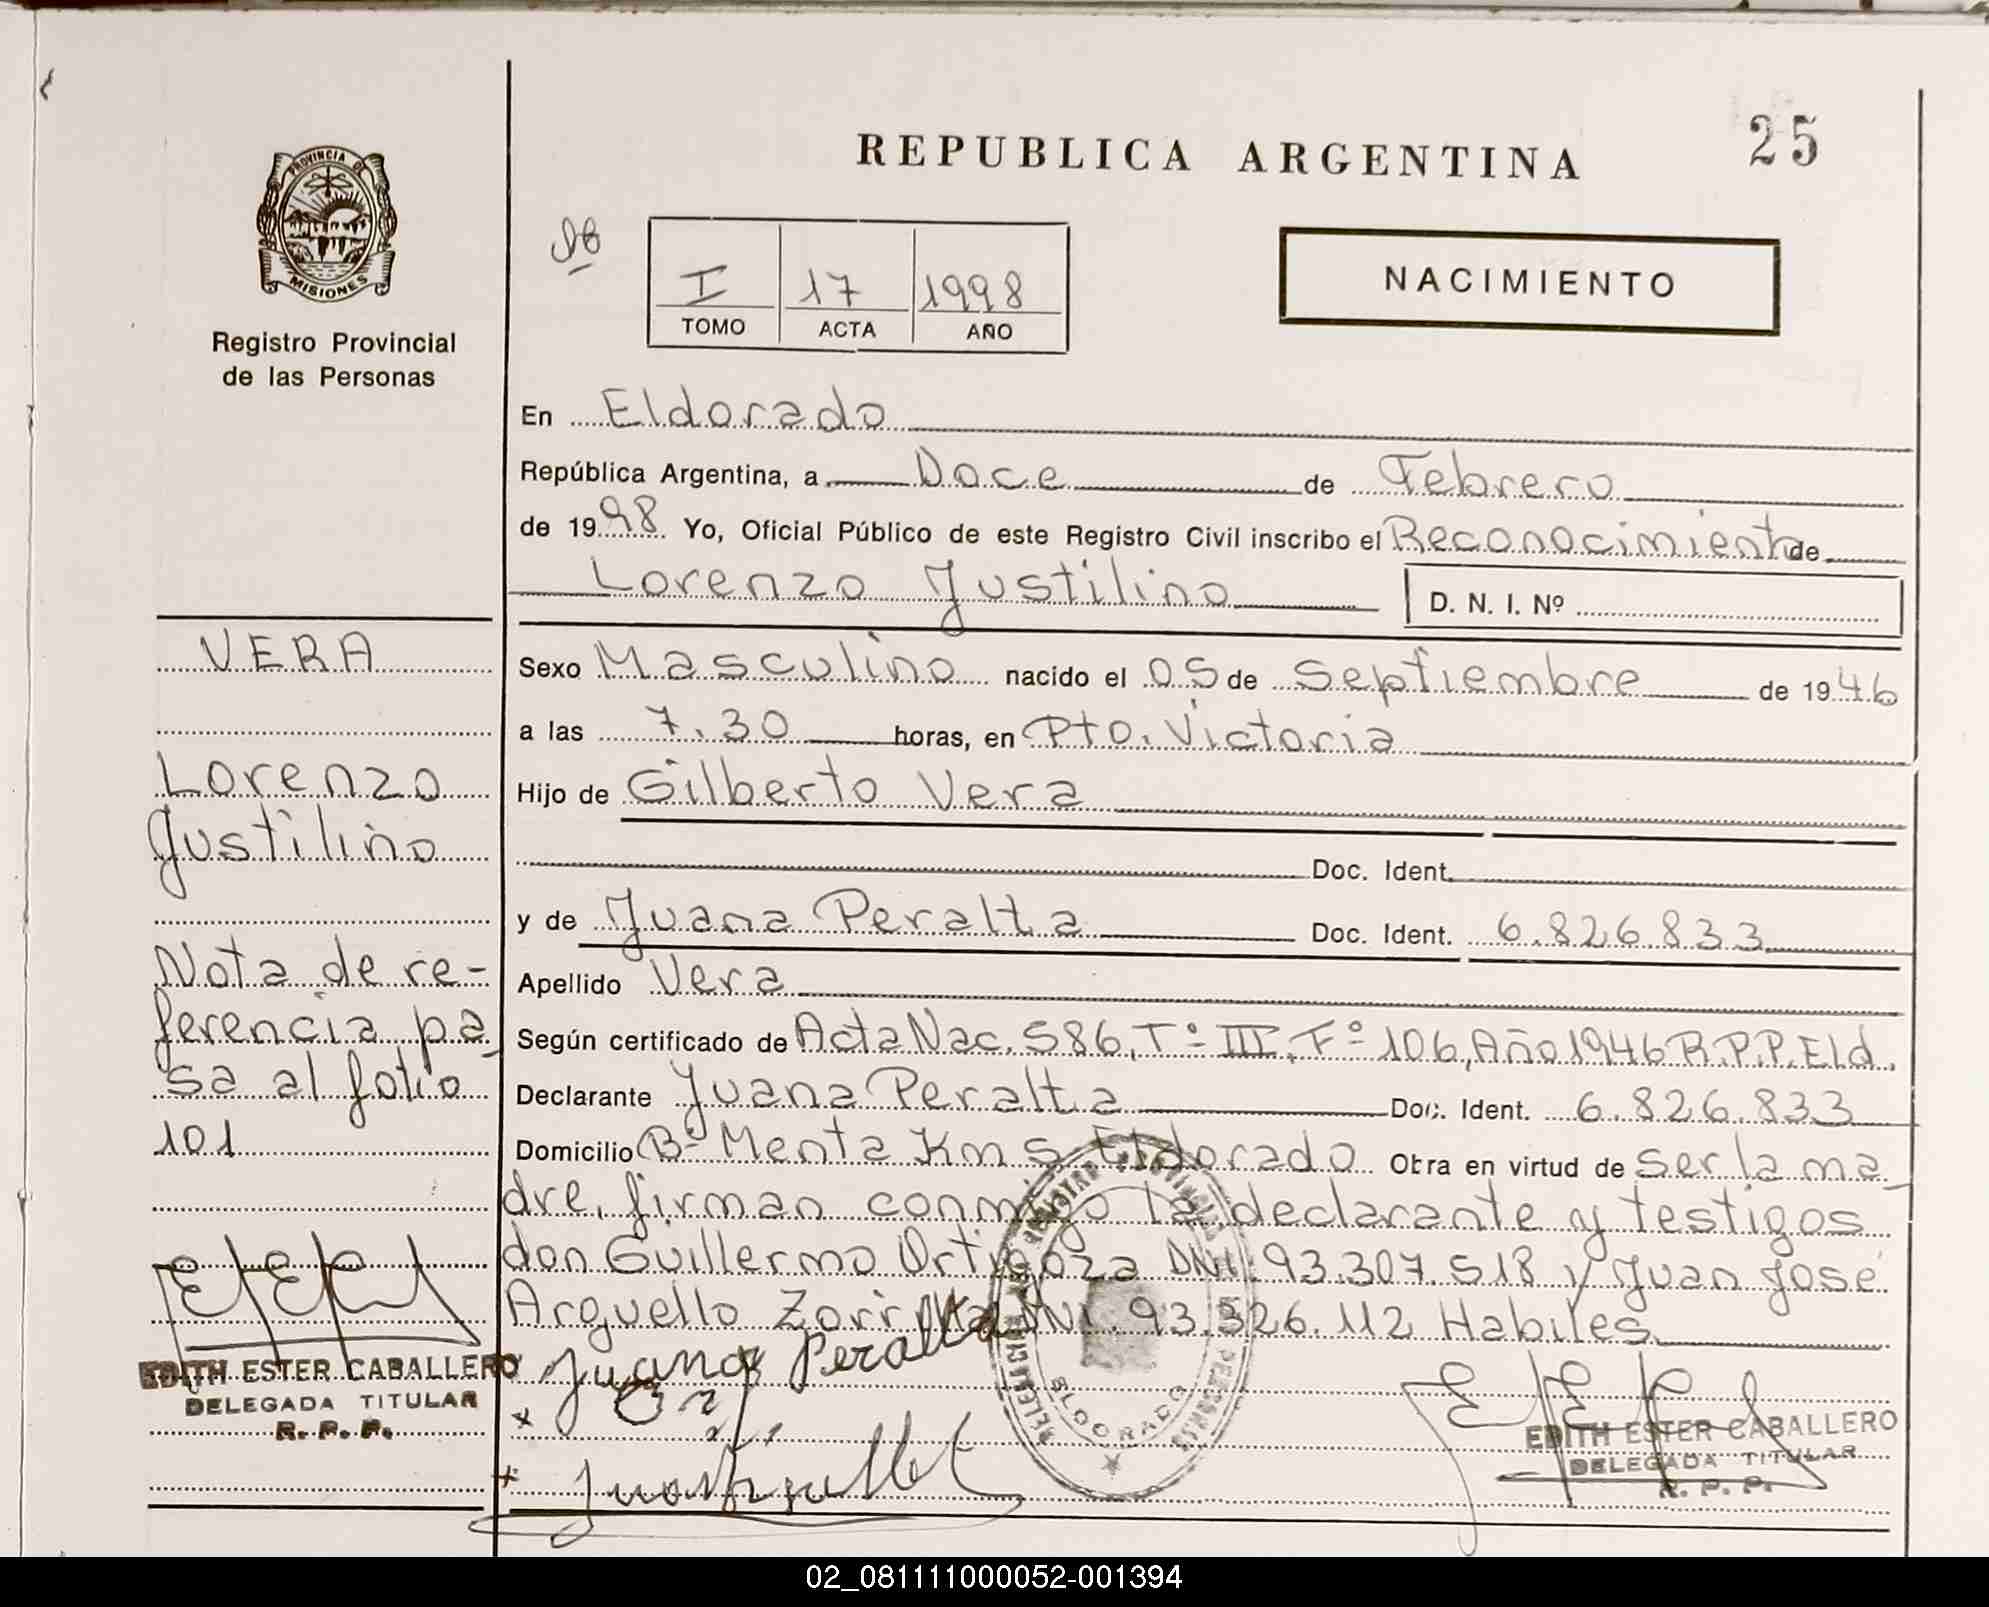 REPUBLICA ARGENTINA
25
PROVINCIA DE
MISIONES
Registro Provincial
de las Personas
I 17 1998
TOMO ACTA AÑO
NACIMIENTO
En Eldorado
República Argentina, a Doce de Febrero
de 1998 Yo, Oficial Público de este Registro Civil inscribo el Reconocimiento de
Lorenzo Justilino D. N. I. Nº
Sexo Masculino nacido el 05 de Septiembre de 1946
a las 7.30 horas, en Pto. Victoria
Hijo de Gilberto Vera
Doc. Ident.
y de Juana Peralta Doc. Ident. 6.826.833
Apellido Vera
Según certificado de Acta Nac. 586, Tº III, Fº 106, Año 1946 R.P.P. Eld.
Declarante Juana Peralta Doc. Ident. 6.826.833
Domicilio Bº Menta Km 5 Eldorado Obra en virtud de ser la ma_
dre, firman conmigo la declarante y testigos
don Guillermo Ortigoza DNI 93.307.518 y Juan José
Arguello Zorrilla DNI. 93.326.112 Habiles
Juana Peralta
EDITH ESTER CABALLERO
DELEGADA TITULAR
R. P. P.
ELDORADO
VERA
Lorenzo
Justilino
Nota de re-
ferencia pa_
sa al folio
101
EDITH ESTER CABALLERO
DELEGADA TITULAR
R. P. P.
02_081111000052-001394